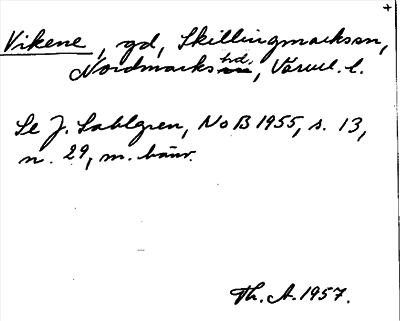 Vikene, gd, Skillingmarks sn,
Nordmarks hd, Värml. l.
Se J. Sahlgren, NoB 1955, s. 13,
n. 29, m. hänv.
Th. A. 1957.